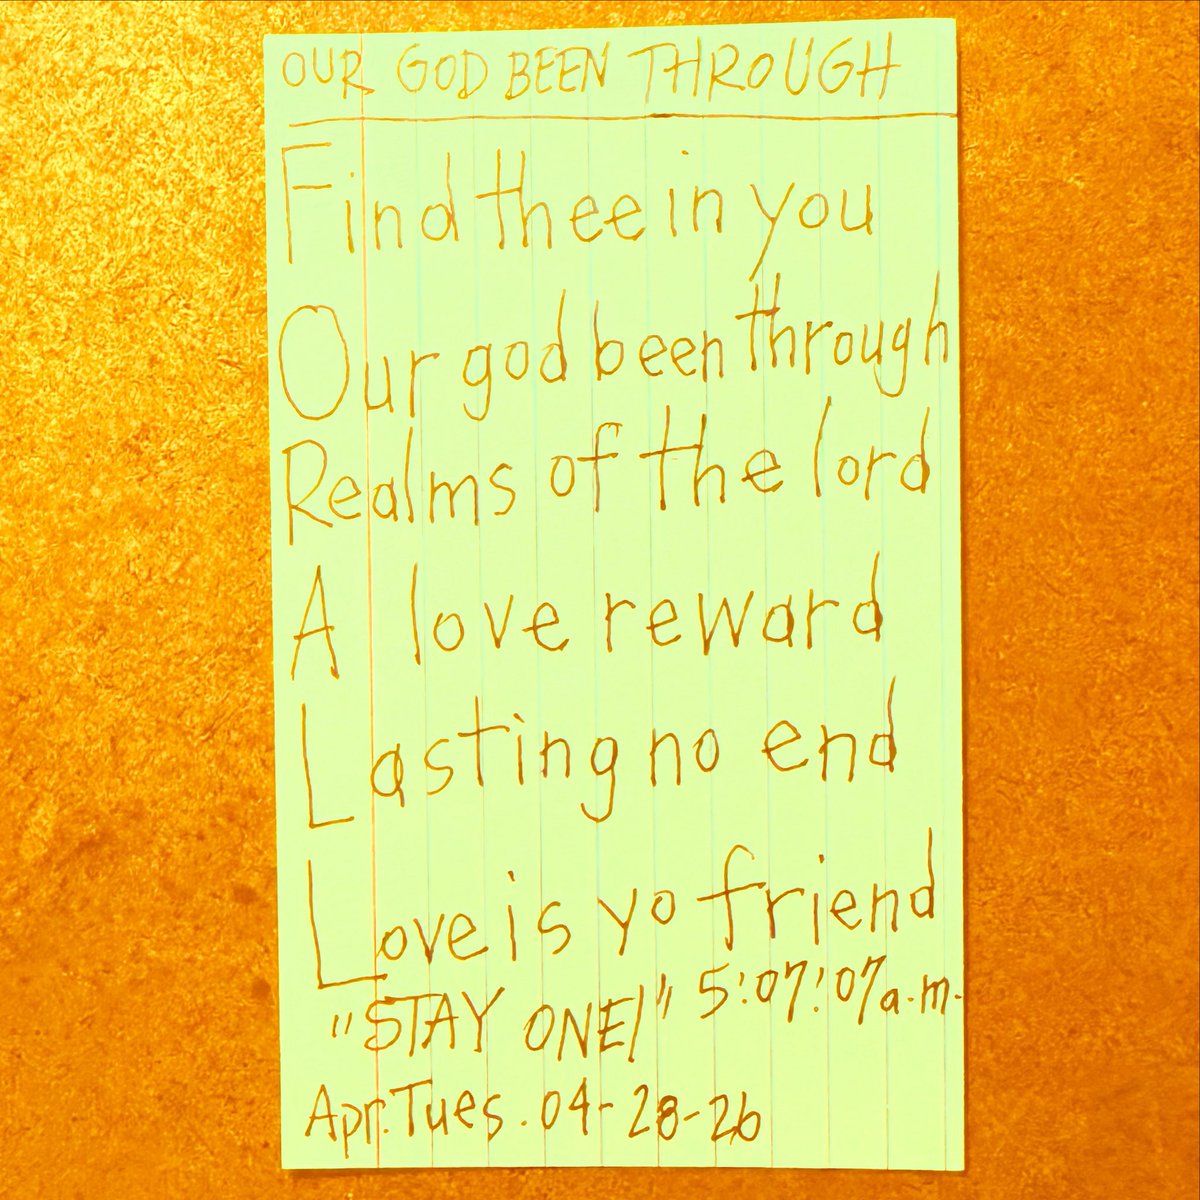 OUR GOD BEEN THROUGH
Find thee in you
Our god been through
Realms of the lord
A love reward
Lasting no end
Love is yo friend
"STAY ONE!" 5:07:07a.m.
Apr. Tues. 04-28-26